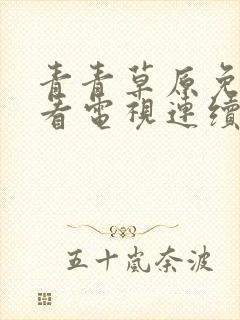 青青草原免
看電視連續
五十嵐奈波